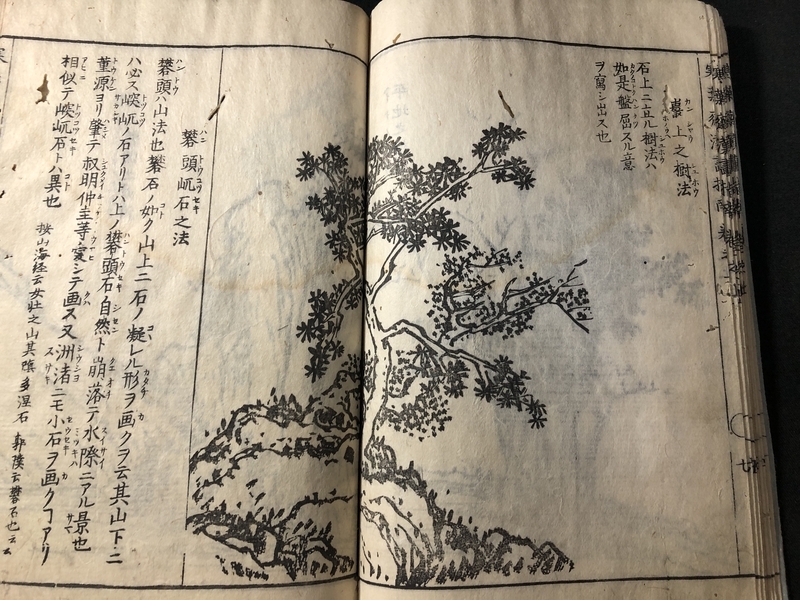 上之樹法
石上ニ立ル樹法ハ
如是盤屈スル意
ヲ寫シ出ス也
礬頭屼石之法
礬頭ハ山法也礬石ノ如ク山上ニ石ノ凝レル形ヲ画クヲ云其山下ニ
ハ必ス㟮屼ノ石アリトハ上ノ礬頭石自然ト崩落テ水際ニアル景也
董源ヨリ肇テ叔明仲圭等愛シテ画ス又洲渚ニモ小石ヲ画クコアリ
相似テ㟮屼石トハ異也
按山海経云女牀之山其陰多涅石 郭璞云礬石也云云